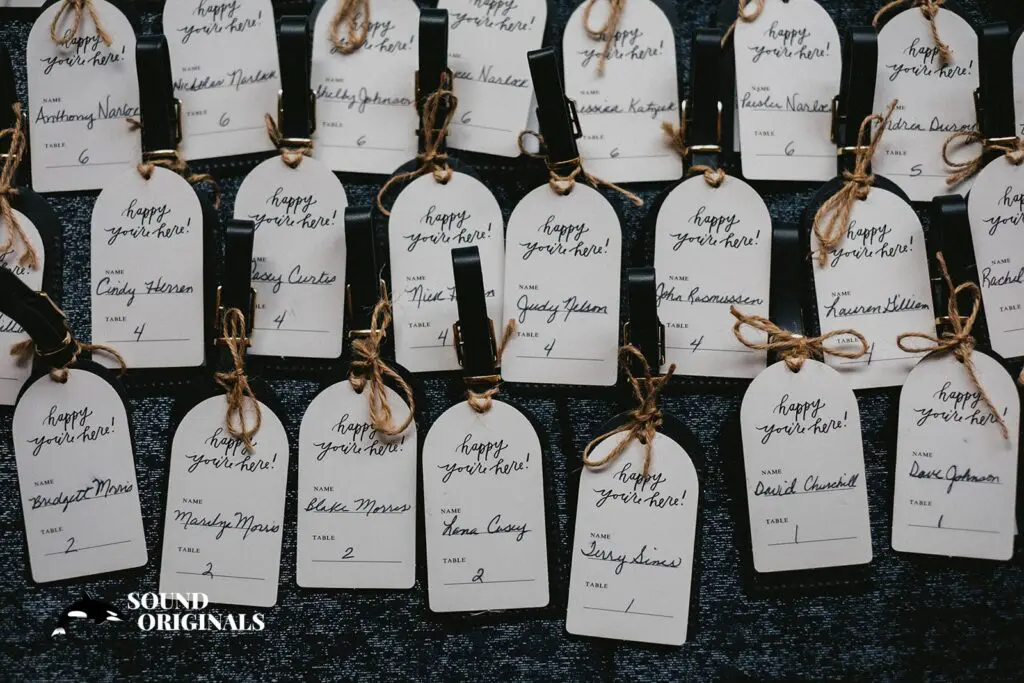 happy
you're here!
NAME
Anthony Narlock
TABLE
6
happy
you're here!
NAME
Nicholas Narlock
TABLE
6
happy
you're here!
Shelby Johnson
TABLE
6
happy
you're here!
Narlock
6
happy
you're here!
Jessica
TABLE
6
happy
you're here!
NAME
Narlock
TABLE
6
happy
you're here!
NAME
Andrea
TABLE
5
happy
you're here!
NAME
Cindy Herren
TABLE
4
happy
you're here!
Casey Curtis
TABLE
4
happy
you're here!
NAME
Nick
TABLE
4
happy
you're here!
NAME
Judy Nelson
TABLE
4
happy
you're here!
NAME
John Rasmussen
TABLE
4
happy
you're here!
NAME
Lauren Gillian
TABLE
4
happy
you're here!
NAME
Rachel
TABLE
4
happy
you're here!
NAME
Bridgett Morris
TABLE
2
happy
you're here!
NAME
Marilyn Morris
TABLE
2
happy
you're here!
NAME
Blake Morris
TABLE
2
happy
you're here!
NAME
Lana Cusey
TABLE
2
happy
you're here!
NAME
Terry Sines
TABLE
1
happy
you're here!
NAME
David Churchill
TABLE
1
happy
you're here!
NAME
Dave Johnson
TABLE
1
SOUND
ORIGINALS